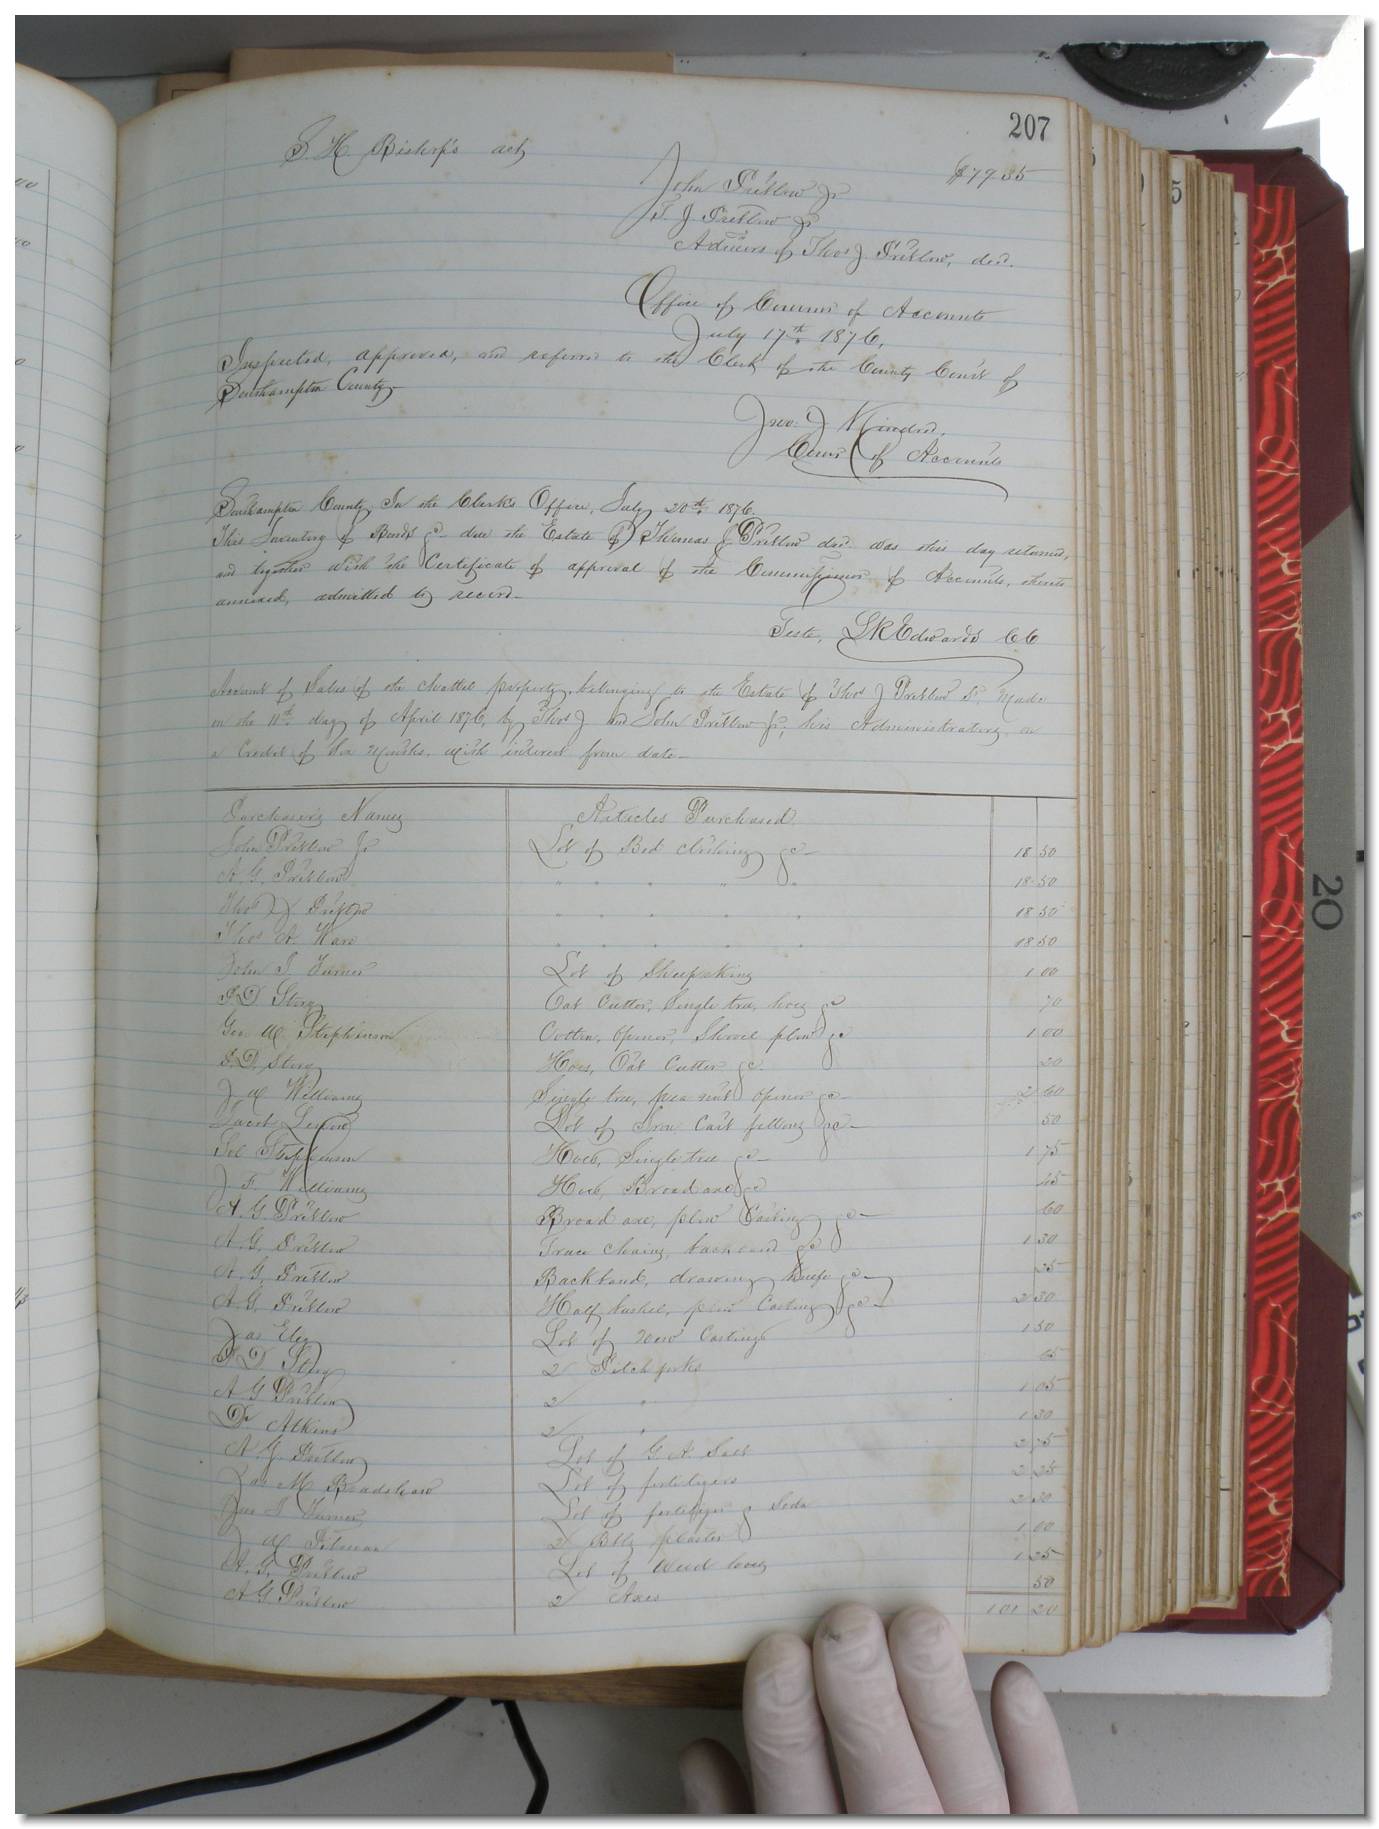 207
S. H. Bishop's act $79 35
John Pretlow Jr
T. J. Pretlow Jr
Admors of Thos J Pretlow, decd.
Office of Commr of Accounts
July 17th 1876,
Inspected, approved, and referred to the Clerk of the County Court of
Southampton County
Jno. J Kindred,
Comr of Accounts
Southampton County, In the Clerk's Office, July 20th 1876.
This Inventory of Bonds &c due the Estate of Thomas J Pretlow decd was this day returned,
and together with the Certificate of approval of the Commissioner of Accounts, thereto
annexed, admitted to record.
Teste, L R Edwards CC
Account of Sales of the chattel property, belonging to the Estate of Thos J Pretlow Sr. Made
on the 11th day of April 1876, by Thos J and John Pretlow Jr, his Administrators, on
a Credit of Six Months, with interest from date
Purchaser's Names Articles Purchased
John Pretlow Jr Lot of Bed clothing &c 18 50
A. G. Pretlow " " " " " 18 50
Thos J. Pretlow " " " " " 18 50
Thos A. Ware " " " " " 18 50
John J. Turner Lot of Sheepskins 1 00
P. D. Story Oat Cutter, Single tree, hoes &c 70
Geo. W. Stephenson Cotton, opener, Shovel plow &c 1 00
P. D. Story Hoes, Oat Cutter &c 20
J W Williams Single tree, pea nut opener &c 2 60
Jacob Lot of Iron, Cart felloes &c 50
Sol Stephenson Hoes, Single tree &c 1 75
J. F. Williams Hoes, Broad axe &c 65
A. G. Pretlow Broad axe, plow Castings &c 60
A. G. Pretlow Trace chains, back band &c 1 30
A. G. Pretlow Backband, drawing knife &c 25
A. G. Pretlow Half bushel, plow Castings &c 2 50
Jas Eley Lot of new Castings 1 50
P. D. Story 2 Pitch forks 65
A G Pretlow 2 " 1 05
Dr Atkins 2 " 1 30
A. G. Pretlow Lot of G. A. Salt 2 75
Jas M Bradshaw Lot of fertilizers 2 25
Jno J Turner Lot of fertilizer & Soda 2 50
J W Pitman 2 Bbls plaster 1 00
A. G. Pretlow Lot of weed hoes 1 25
A G Pretlow 2 Axes 50
101 20
20